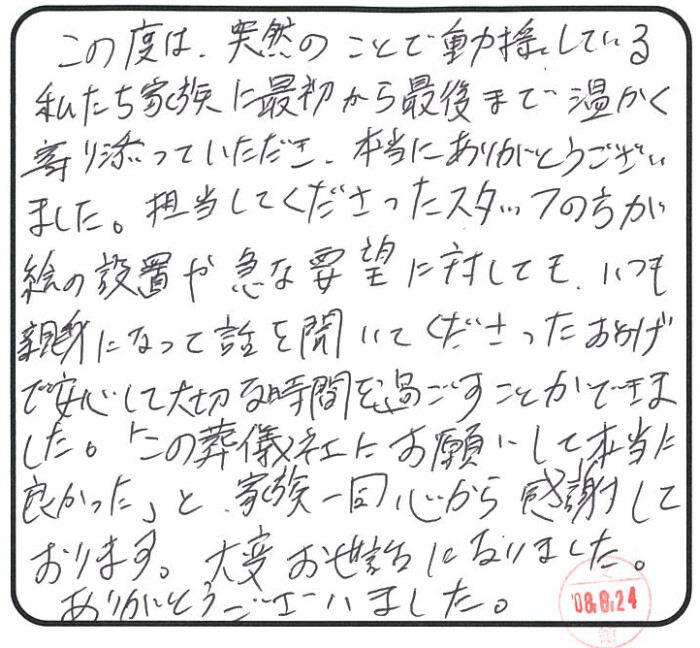 この度は、突然のことで動揺している
私たち家族に最初から最後まで温かく
寄り添っていただき、本当にありがとうござい
ました。担当してくださったスタッフの方が
絵の設置や急な要望に対しても、いつも
親身になって話を聞いてくださったおかげ
で安心して大切な時間を過ごすことができま
した。「この葬儀社にお願いして本当に
良かった」と、家族一同心から感謝して
おります。大変お世話になりました。
ありがとうございました。
'08.8.24
館